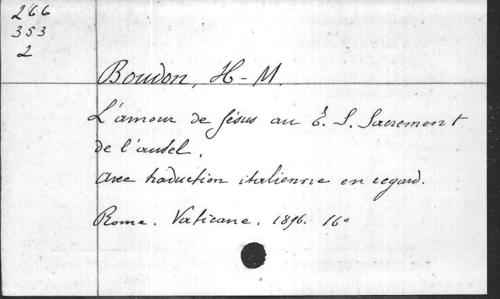 266
353
2
Boudon, H-M.
L'amour de Jésus au T. S. Sacrement
de l'autel.
avec traduction italienne en regard.
Rome. Vaticane. 1896. 16°